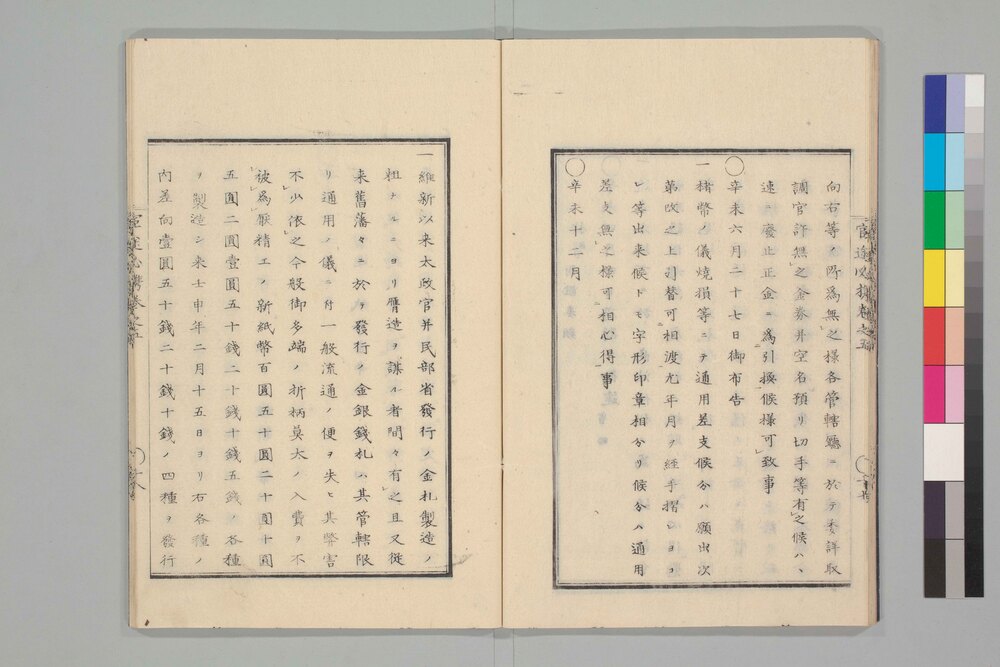 向右等ノ所爲無之様各管轄廳ニ於テ委詳取
調官許無之金券并空名預リ切手等有之候ハヽ
速ニ廢止正金ニ爲引換候様可致事
辛未六月二十七日御布告
一楮幣ノ儀燒損等ニテ通用差支候分ハ願出次
第改之上引替可相渡尤年月ヲ經手摺レヨコ
レ等出来候トモ字形印章相分リ候分ハ通用
差支無之様可相心得事
辛未十二月
一維新以来太政官并民部省發行ノ金札製造ノ
粗ナルニヨリ贋造ヲ謀ル者間々有之且又従
来舊藩々ニ於テ發行ノ金銀錢札ハ其管轄限
リ通用ノ儀ニ付一般流通ノ便ヲ失ヒ其弊害
不少依之今般御多端ノ折柄莫大ノ入費ヲ不
被爲厭精工ノ新紙幣百圓五十圓二十圓十圓
五圓二圓壹圓五十錢二十錢十錢五錢ノ各種
ヲ製造シ来壬申年二月十五日ヨリ右各種ノ
内差向壹圓五十錢二十錢十錢ノ四種ヲ發行
官途必携巻之五